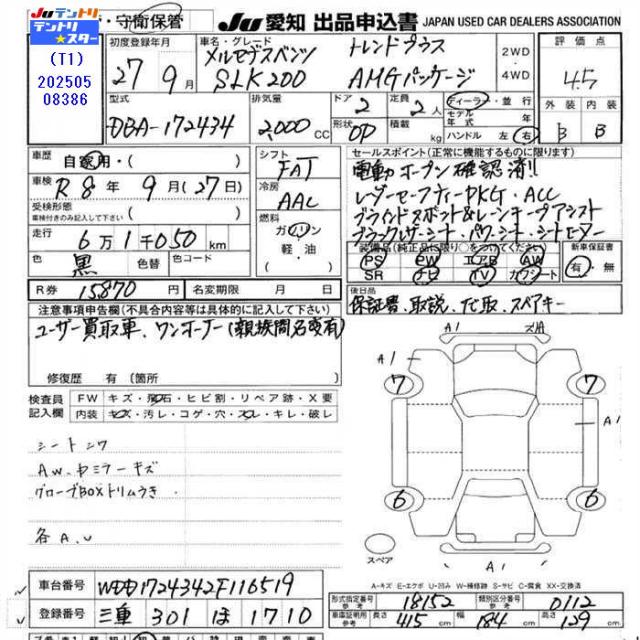 JUテントリ
テントリ★スター
(T1)
202505
08386
・守衛保管
JU 愛知 出品申込書 JAPAN USED CAR DEALERS ASSOCIATION
初度登録年月 車名・グレード 2WD ・ 4WD 評価点
27年 9月 メルセデスベンツ トレンドプラス
SLK200 AMGパッケージ 4.5
型式 排気量 ドア 定員 ディーラー・並行 外装 内装
DBA-172434 2,000cc 2 2人 モデル年式
形状 OP 積載 kg ハンドル 左・右 B B
車歴 自家用・( ) シフト FAT
車検 R8年 9月(27日) 冷房 AAC
受検形態 ( )
車検付きのみ記入して下さい
燃料 ガソリン 軽・油
走行 6万1千050km
色 黒 色替 色コード
R券 15870円 名変期限 月 日
セールスポイント(正常に機能するものに限ります)
電動オープン確認済!!
レーダーセーフティーPKG・ACC
ブラインドスポット&レーンキープアシスト
ブラックレザーシート・パワーシート・シートヒーター
装備品(純正品に限り○をつけてください) 新車保証書
PS PW エアB AW 有・無
SR ナビ TV カワシート
後日品
保証書、取説、TEL取、スペアキー
注意事項申告欄(不具合内容等は具体的に記入して下さい)
ユーザー買取車、ワンオーナー(親族間名変有)
修復歴 有(箇所
検査員記入欄 FW キズ・飛石・ヒビ割・リペア跡・X要
内装 キズ・汚レ・コゲ・穴・スレ・キレ・破レ
シートシワ
AW、ドミラーキズ
グローブBOXトリムうき
各A.U
A1
A1
7 7
A1
6 6
スペア
A1
A-キズ E-エクボ U-凹み W-補修跡 S-サビ C-腐食 XX-交換済
車台番号 WDD1724342F116519
登録番号 三重 301 ほ 1710
形式指定番号 参考 18152 類別区分番号 参考 0112
車庫証明用 参考 長さ 415cm 幅 184cm 高さ 129cm